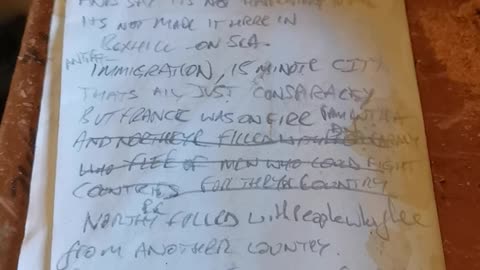 AND SAY IT'S NOT
ITS NOT MADE IT HERE IN
BEXHILL-ON SEA.
IMMIGRATION, 15 MINUTE CITY
THATS ALL JUST CONSPIRACY
BUT FRANCE WAS ON FIRE
AND FILLED WITH
WHO FLEE OF MEN WHO COULD FIGHT
COUNTRIES FOR THEYRE COUNTRY
FILLED with People who flee
from ANOTHER COUNTRY.